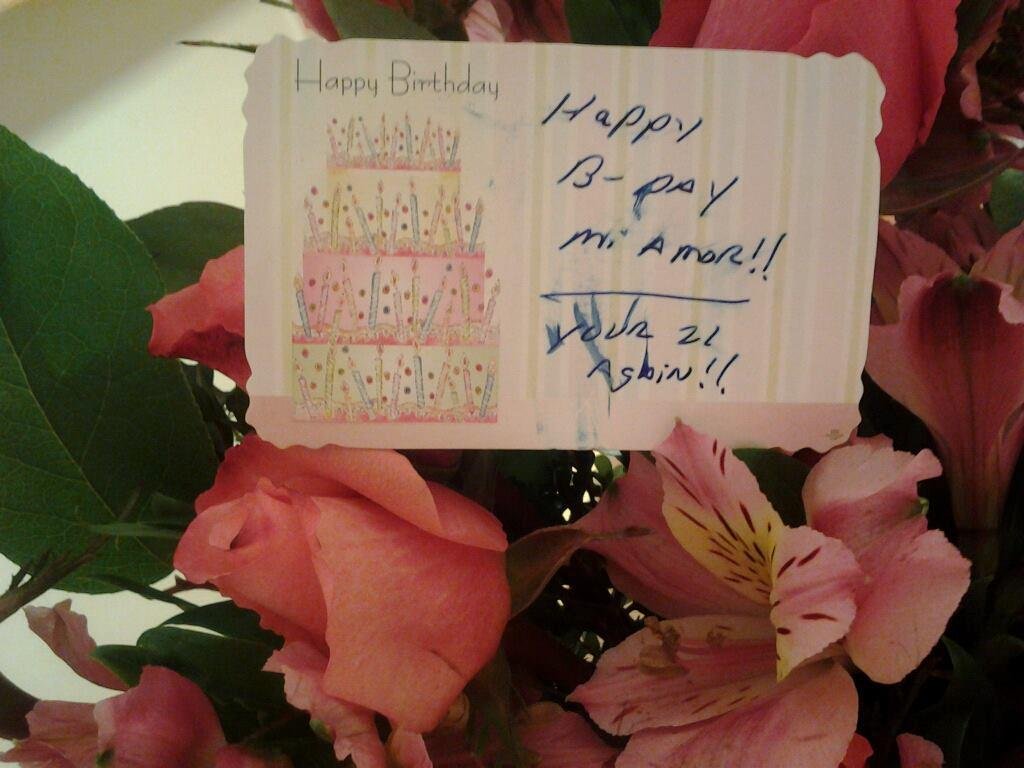 Happy Birthday
Happy
B-DAY
Mi Amor!!
Your 21
Again!!